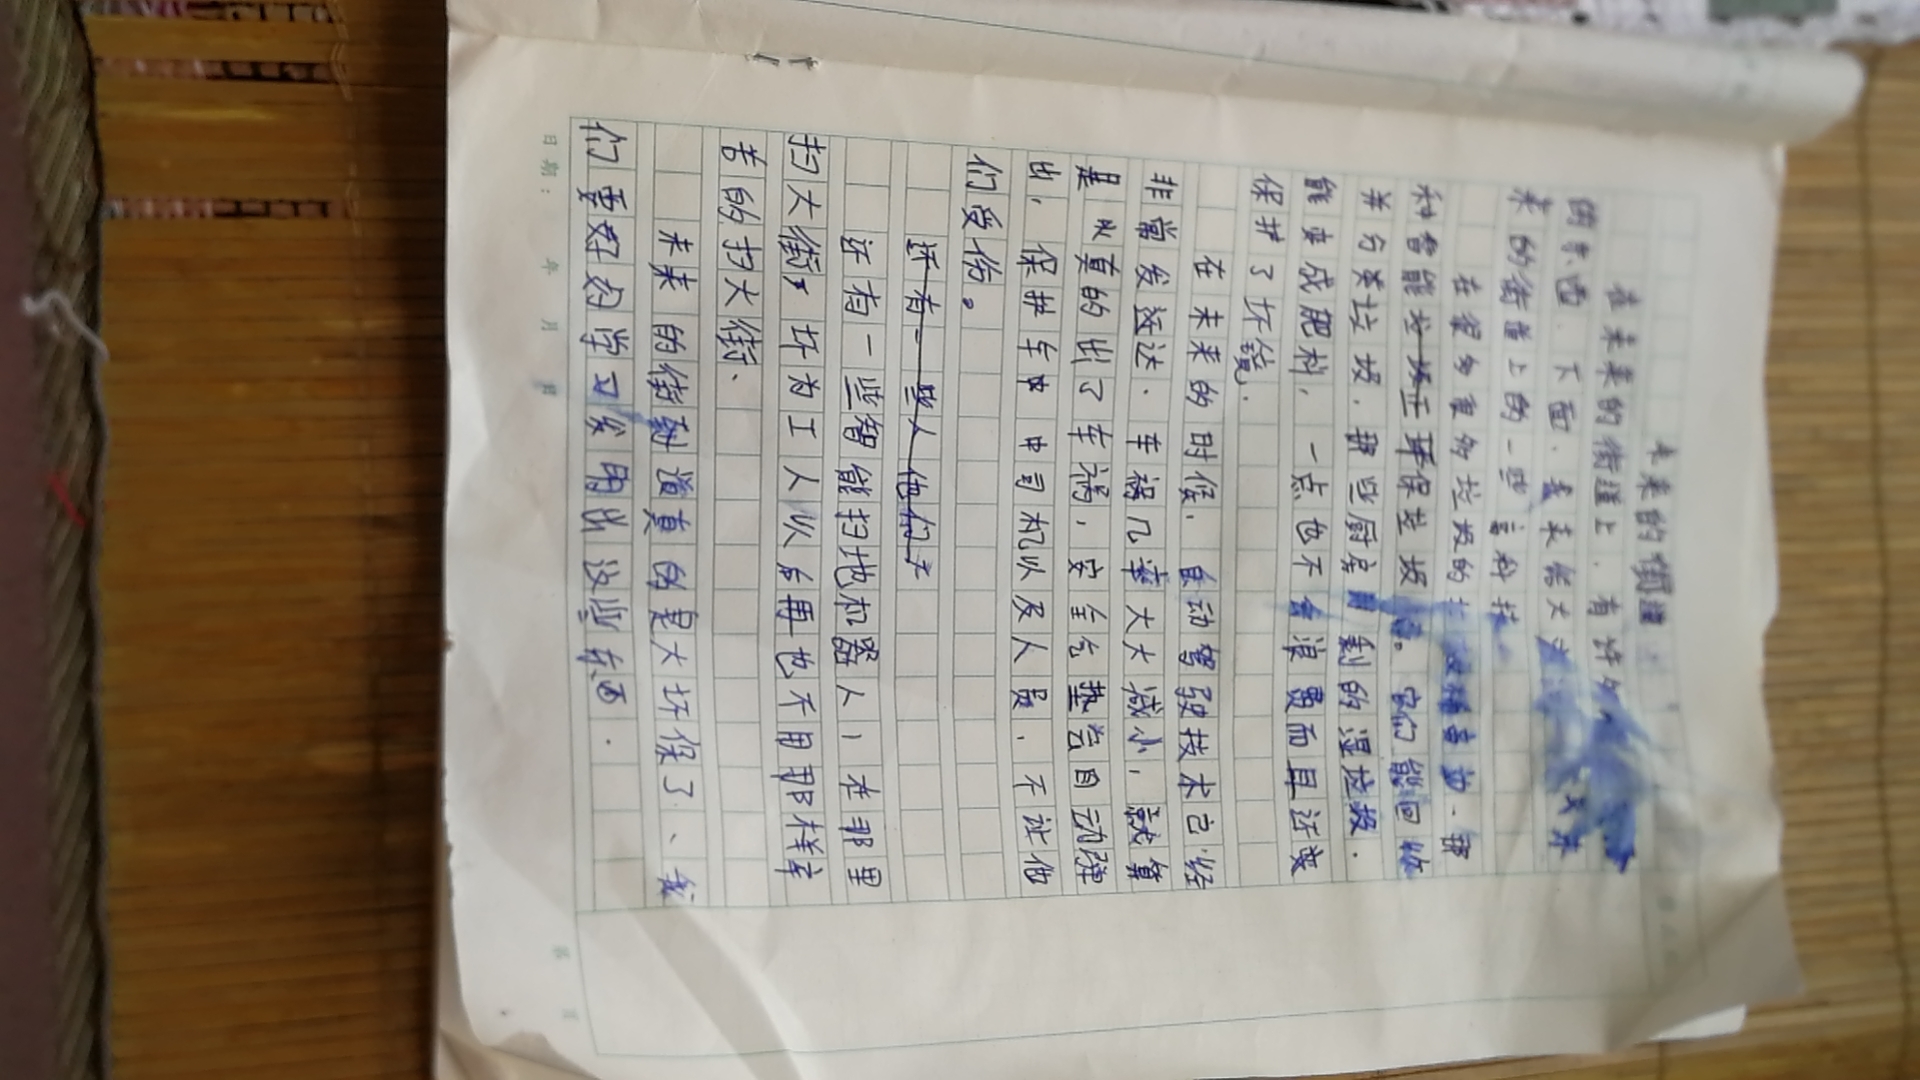 未来的街道
在未来的街道上，有许多
的东西。下面，我来给大家 未
来的街道上的一些高科技
在很多重多垃圾的 那
种智能垃圾正环保垃圾 。它们能回收
并分类垃圾．那些厨房剩的湿垃圾．
能变成肥料，一点也不会浪费而且还变
保护了坏镜．
在未来的时候．自动驾驶技术己经
非常发达．车祸几率大大减小，就算
是从真的出了车祸，安全气垫会自动弹
出，保护车中中司机以及人员．不让他
们受伤。
还有一些人他们天
还有一些智能扫地机器人，在那里
扫大街，坏为工人以后再也不用那样辛
苦的扫大街、
未来的街到道真的是大坏保了、我
们要好好学习发明出这些东西．
日期：年月日
第 页